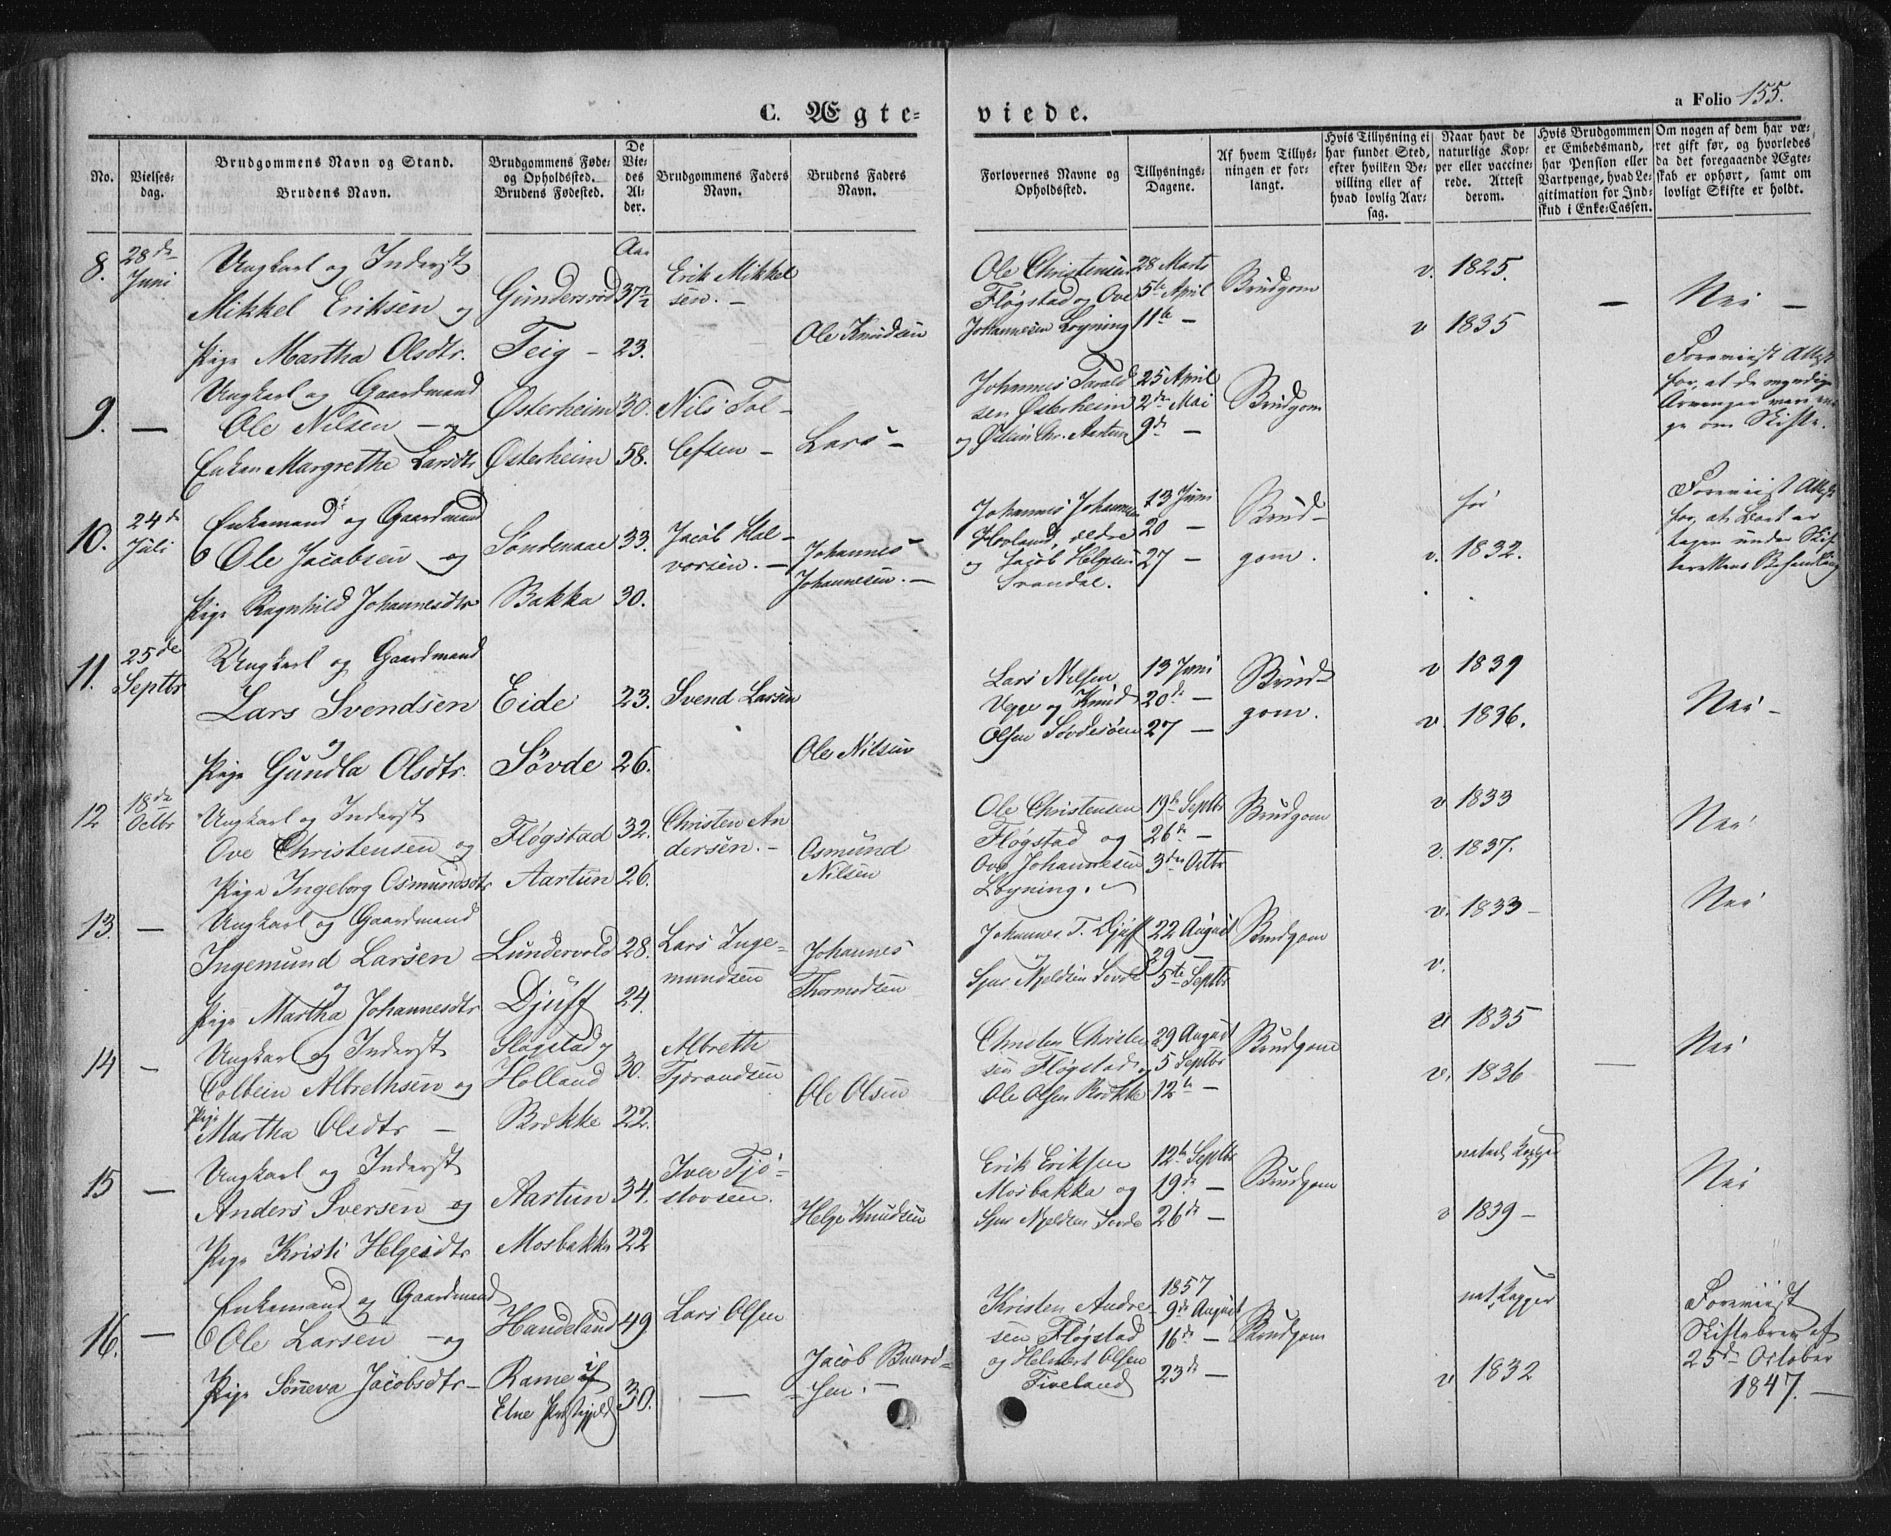 C. Ægte-
viede.
a Folio 155.
No.
Vielses-
dag.
Brudgommens Navn og Stand.
Brudens Navn.
Brudgommens Føde-
og Opholdssted.
Brudens Fødested.
De
Vie-
des
Al-
der.
Brudgommens Faders
Navn.
Brudens Faders
Navn.
Forlovernes Navne og
Opholdssted.
Tillysnings-
Dagene.
Af hvem Tillys-
ningen er for-
langt.
Hvis Tillysning ei
har fundet Sted,
efter hvilken Be-
villing eller af
hvad lovlig Aar-
sag.
Naar havt de
naturlige Kop-
per eller vaccine-
rede. Attest
derom.
Hvis Brudgommen
er Embedsmand,
har Pension eller
Vartpenge, hvad Le-
gitimation for Ind-
skud i Enke-Cassen.
Om nogen af dem har væ-
ret gift før, og hvorledes
da det foregaaende Ægte-
skab er ophørt, samt om
lovligt Skifte er holdt.
8.
28de
Juni
Ungkarl og Inderst
Mikkel Eriksen og
Pige Martha Olsdtr.
Gundersrød
Teig –
Aar
37½
23.
Erik Mikkel
sen. –
Ole Knudsen
Ole Christensen
Fløgstad og Ove
Johannesen Løgning
28 Marts
5te April
11te –
Brudgom
v. 1825.
v 1835
–
Nei –
9.
–
Ungkarl og Gaardmand
Ole Nilsen – og
Enken Margrethe Larsdtr
Østerheim
Østerheim
30.
58.
Nils Tol-
lefsen –
Lars –
Johannes Tarald
sen Østerheim
og Østen Chr. Aartun
25 April
2den Mai
9de –
Brudgom
Foreviist Attest
for, at de myndige
Arvinger vare eni-
ge om Skifte.
10.
24de
Juli
Enkemand og Gaardmand
Ole Jacobsen og
Pige Ragnhild Johannesdtr
Søndenaae
Bakka
33.
30.
Jacob Hal-
vorsen. –
Johannes
Johannesen. –
Johannes Johannesen
Hovland, ældre
og Jacob Helgesen
Svandal.
13 Juni
20 –
27 –
Brud-
gom.
før
v. 1832.
Foreviist Attest
for, at Boet er
tagen under Skif-
terettens Behandling
11.
25de
Septbr
Ungkarl og Gaardmand
Lars Svendsen
og
Pige Gundla Olsdtr.
Eide
Søvde
23.
26.
Svend Larsen
Ole Nilsen
Lars Nilsen
og Knud
Olsen Søvdesøen
13 Juni
20de –
27 –
Brud-
gom.
v 1839
v. 1836.
Nei –
12
18de
Octbr
Ungkarl og Inderst
Ove Christensen og
Pige Ingeborg Osmundsdtr
Fløgstad
Aartun
32.
26.
Christen An
dersen. –
Osmund
Nilsen
Ole Christensen
Fløgstad og
Ove Johannesen
Løgning.
19de Septbr
26de –
3die Octbr
Brudgom
v 1833
v. 1837.
Nei
13.
–
Ungkarl og Gaardmand
Ingemund Larsen
og
Pige Martha Johannesdtr
Lundervold
Djuff
28.
24.
Lars Inge-
mundsen
Johannes
Thormodsen
Johannes T. Djuff
og
22 August
29 –
5te Septbr
Brudgom
v. 1833 –
v.
Nei
14
–
Ungkarl og Inderst
Colbein Albrethsen og
Pige
Martha Olsdtr –
Fløgstad og
Holland
Brekke
30.
22.
Albreth
Tjerandsen
Ole Olsen
Christen Christen
sen Fløgstad og
Ole Olsen Brekke
29 August
5 Septbr
12te –
Brudgom
v 1835
v. 1836
–
Nei
15
–
Ungkarl og Inderst
Anders Iversen og
Pige Kristi Helgesdtr
Aartun
Mosbakke
34.
22
Iver Tjø-
stovsen.
Helge Knudsen
Erik Eriksen
Mosbakka og
12te Septbr
19de –
26de –
Brudgom
naturl. Kopper
v 1839 –
Nei
16.
–
Enkemand og Gaardmand
Ole Larsen – og
Pige Sønneva Jacobsdtr –
Handeland
Rame af
Etne Præstegjeld
49
30.
Lars Olsen
–
Jacob Baard-
sen. –
Kristen Andre
sen Fløgstad
og Helmert Olsen
Tiveland
1857
9de August
16de –
23de –
Brudgom
nat. Kopper
v 1832
Foreviist
Skiftebrev af
25de October
1847. –